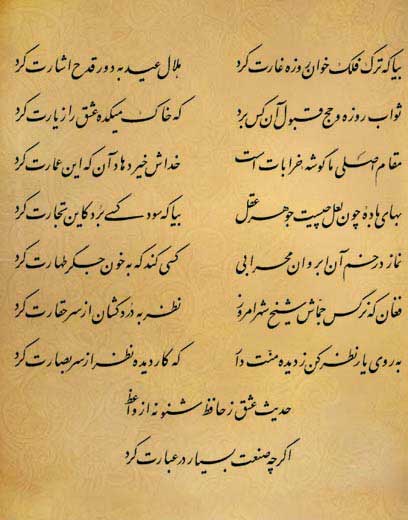 بیا که ترک فلک خوان روزه غارت کرد هلال عید به دور قدح اشارت کرد
ثواب روزه و حج قبول آن کس برد که خاک میکده عشق را زیارت کرد
مقام اصلی ما گوشه خرابات است خداش خیر دهاد آن که این عمارت کرد
بهای باده چون لعل چیست جوهر عقل بیا که سود کسی برد کاین تجارت کرد
نماز در خم آن ابروان محرابی کسی کند که به خون جگر طهارت کرد
فغان که نرگس جماش شیخ شهر امروز نظر به دردکشان از سر حقارت کرد
به روی یار نظر کن ز دیده منت دار که کار دیده نظر از سر بصارت کرد
حدیث عشق ز حافظ شنو نه از واعظ
اگرچه صنعت بسیار در عبارت کرد